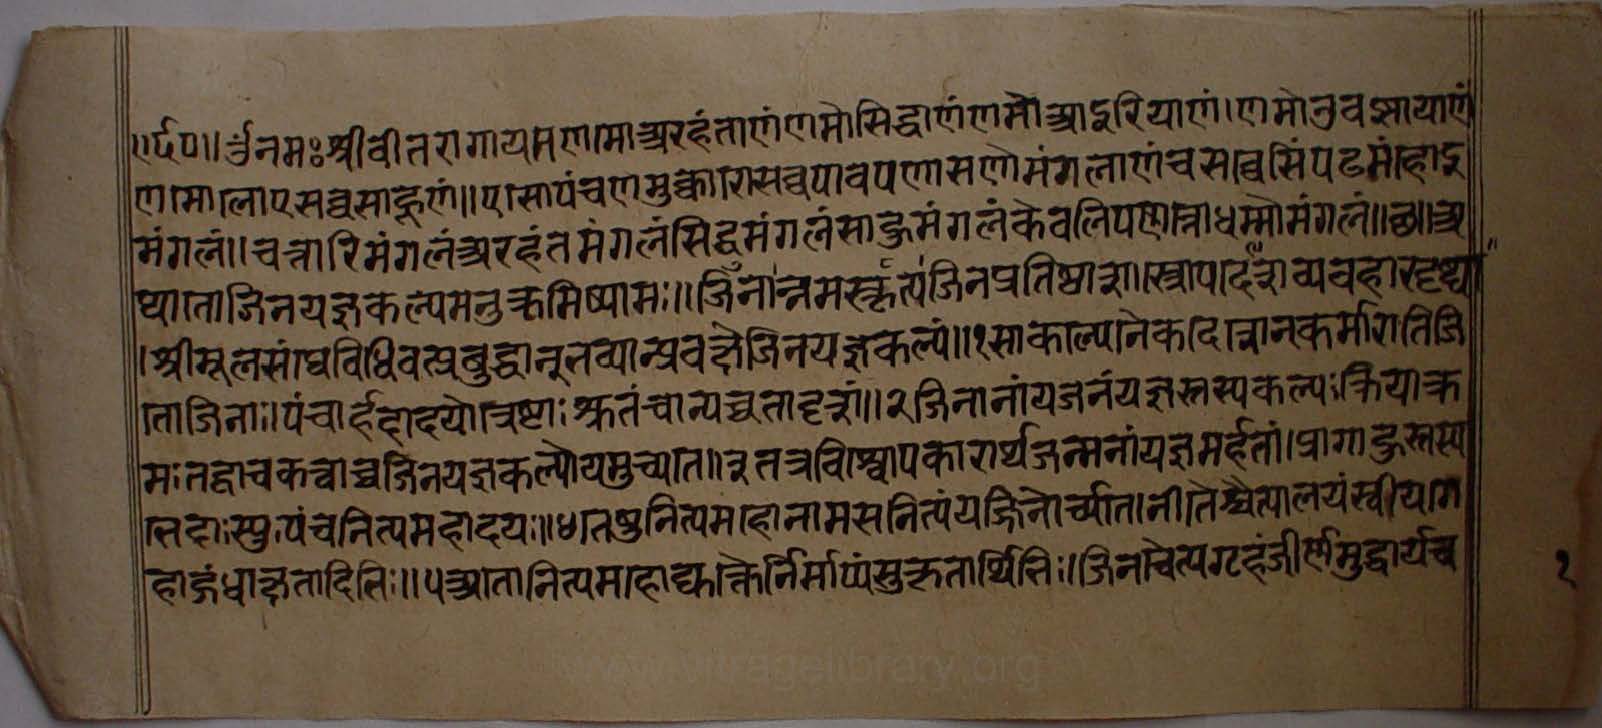 ॥र्द०॥ र्उनमः श्रीवीतरागाय णमो अरहंताणं णमो सिद्धाणं णमो आइरियाणं। णमो उवझायाणं
णमो लोए सव्वसाहूणं॥ एसो पंचणमुक्कारो सव्वपावपणासणो मंगलाणं च सव्वेसिं पढमं होइ
मंगलं॥ चत्तारि मंगलं अरहंत मंगलं सिद्ध मंगलं साहु मंगलं केवलिपणत्तो धम्मो मंगलं॥छ॥ अ
थातो जिनयज्ञकल्पमनुक्रमिष्यामः॥ जिनान्नमस्कृत्य जिनप्रतिष्ठाशास्त्रोपदेशव्यवहारदृष्ट्या
।श्रीमूलसंघे विधिवत्प्रबुद्धान् भव्यान्प्रवक्ष्ये जिनयज्ञकल्पं॥१ साकल्येनैकदेशेन कर्मारातिजि
तो जिनाः। पंचार्हदादयो श्रुतं चान्यच्च तादृशं॥२ जिनानां यजनं यज्ञस्तस्य कल्पः क्रियाक्र
मः तद्वाचकत्वाच्च जिनयज्ञकल्पोयमुच्यते॥३ तत्र विश्वोपकारार्थजन्मनां यज्ञमर्हतां। प्रागाहुस्तस्य
भेदाः स्युः पंच नित्यमहादयः॥४ नित्यमहो नाम स नित्यं यज्जिनोर्च्यते। नीतैश्चैत्यालयं स्वीयगे
हाद्गंधाक्षतादिभिः॥५ नित्यमहोद्युक्तैर्निर्माप्यं सुकृतार्थिभिः। जिनचैत्यगृहं जीर्णमुद्धार्यं च
१
www.vitragelibrary.org